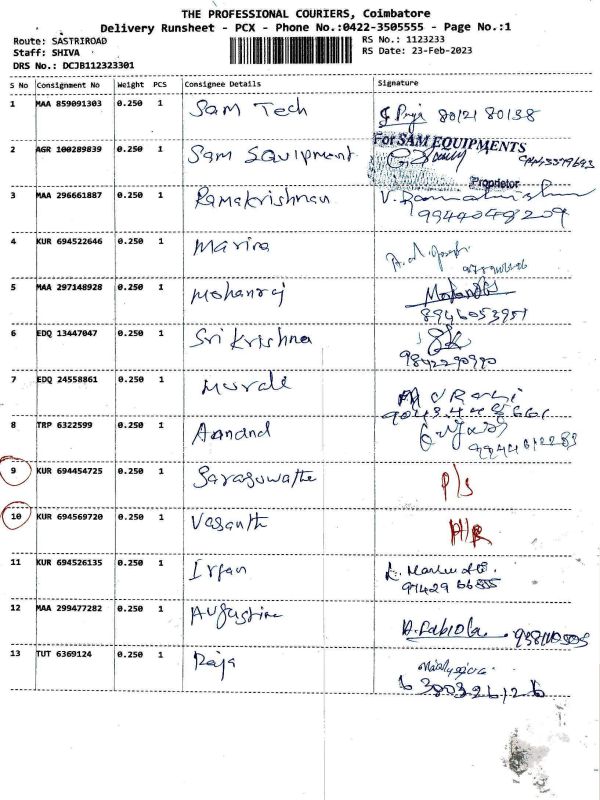 THE PROFESSIONAL COURIERS, Coimbatore
Delivery Runsheet - PCX - Phone No.:0422-3505555 - Page No.:1
Route: SASTRIROAD
RS No.: 1123233
Staff: SHIVA
RS Date: 23-Feb-2023
DRS No.: DCJB112323301
S No Consignment No Weight PCS Consignee Details Signature
1 MAA 859091303 0.250 1 Sam Tech Priya 80121 80138
2 AGR 100289839 0.250 1 Sam Equipment
For SAM EQUIPMENTS
Proprietor
3 MAA 296661887 0.250 1 Ramakrishnan V. Ramakrishnan
4 KUR 694522646 0.250 1 Marina
5 MAA 297148928 0.250 1 Mohanraj
8946053951
6 EDQ 13447047 0.250 1 Sri Krishna SK
9842290990
7 EDQ 24558861 0.250 1 Murali
8 TRP 6322599 0.250 1 Aanand
9 KUR 694454725 0.250 1 Saraswathe P/S
10 KUR 694569720 0.250 1 Vasanth
11 KUR 694526135 0.250 1 Irfan
12 MAA 299477282 0.250 1 Augastine A. Fabiola
13 TUT 6369124 0.250 1 Raja